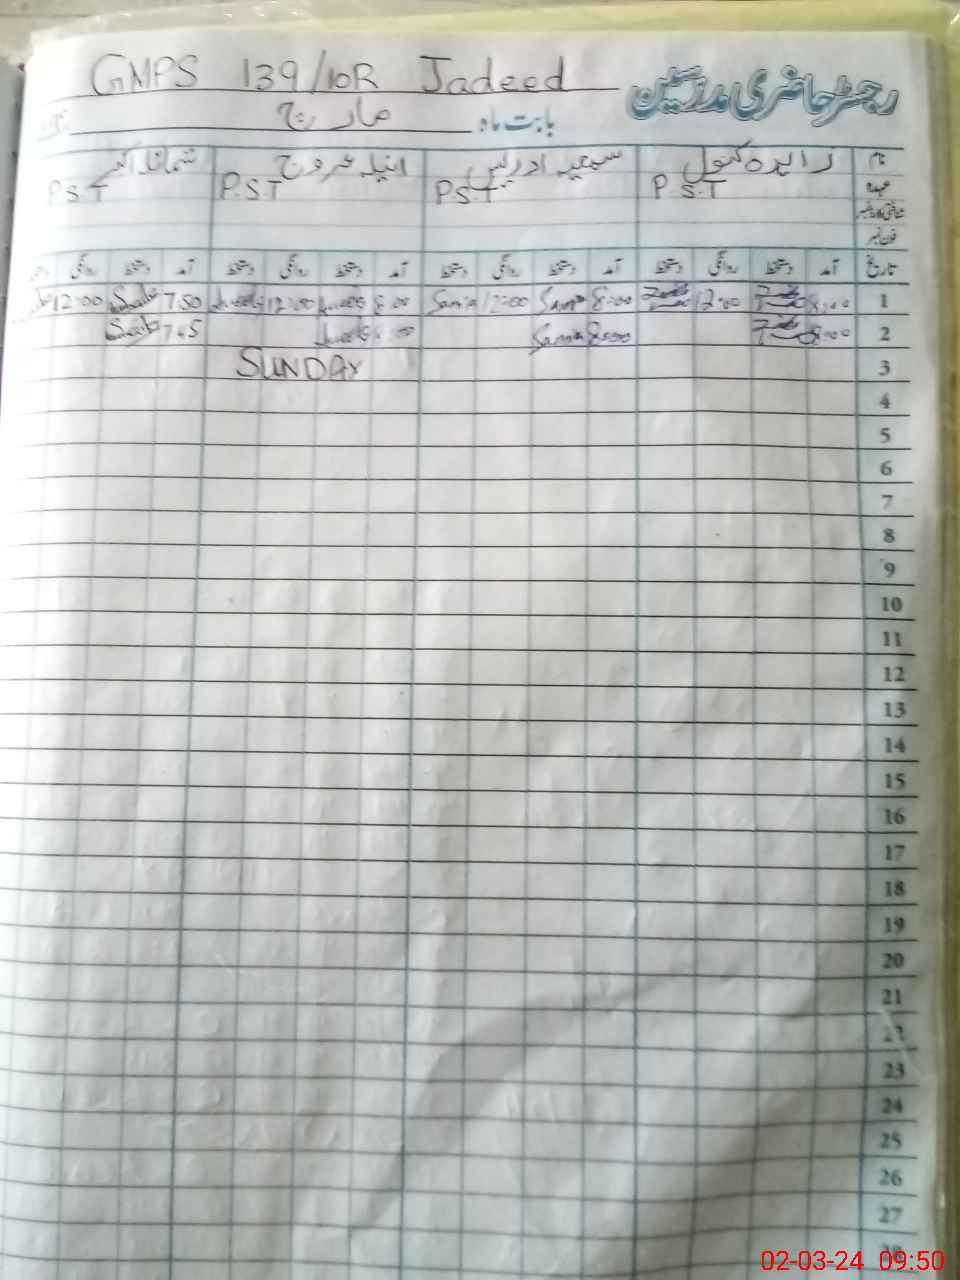 GMPS 139/10R Jadeed
رجسٹر حاضری مدرسین
بابت ماہ مارچ
نام زاہدہ کنول سمعیہ ادریس انیلہ عروج
عہدہ P.S.T P.S.T P.S.T P.S.T
شناختی کارڈ نمبر
فون نمبر
تاریخ آمد دستخط روانگی دستخط آمد دستخط روانگی دستخط آمد دستخط روانگی دستخط آمد دستخط روانگی
1 8:00 12:00 8:00 Samia 12:00 Samia 8:00 12:00 7:50 12:00
2 8:00 8:00 Samia 8:00 7:45
3 SUNDAY
4
5
6
7
8
9
10
11
12
13
14
15
16
17
18
19
20
21
22
23
24
25
26
27
28
02-03-24 09:50